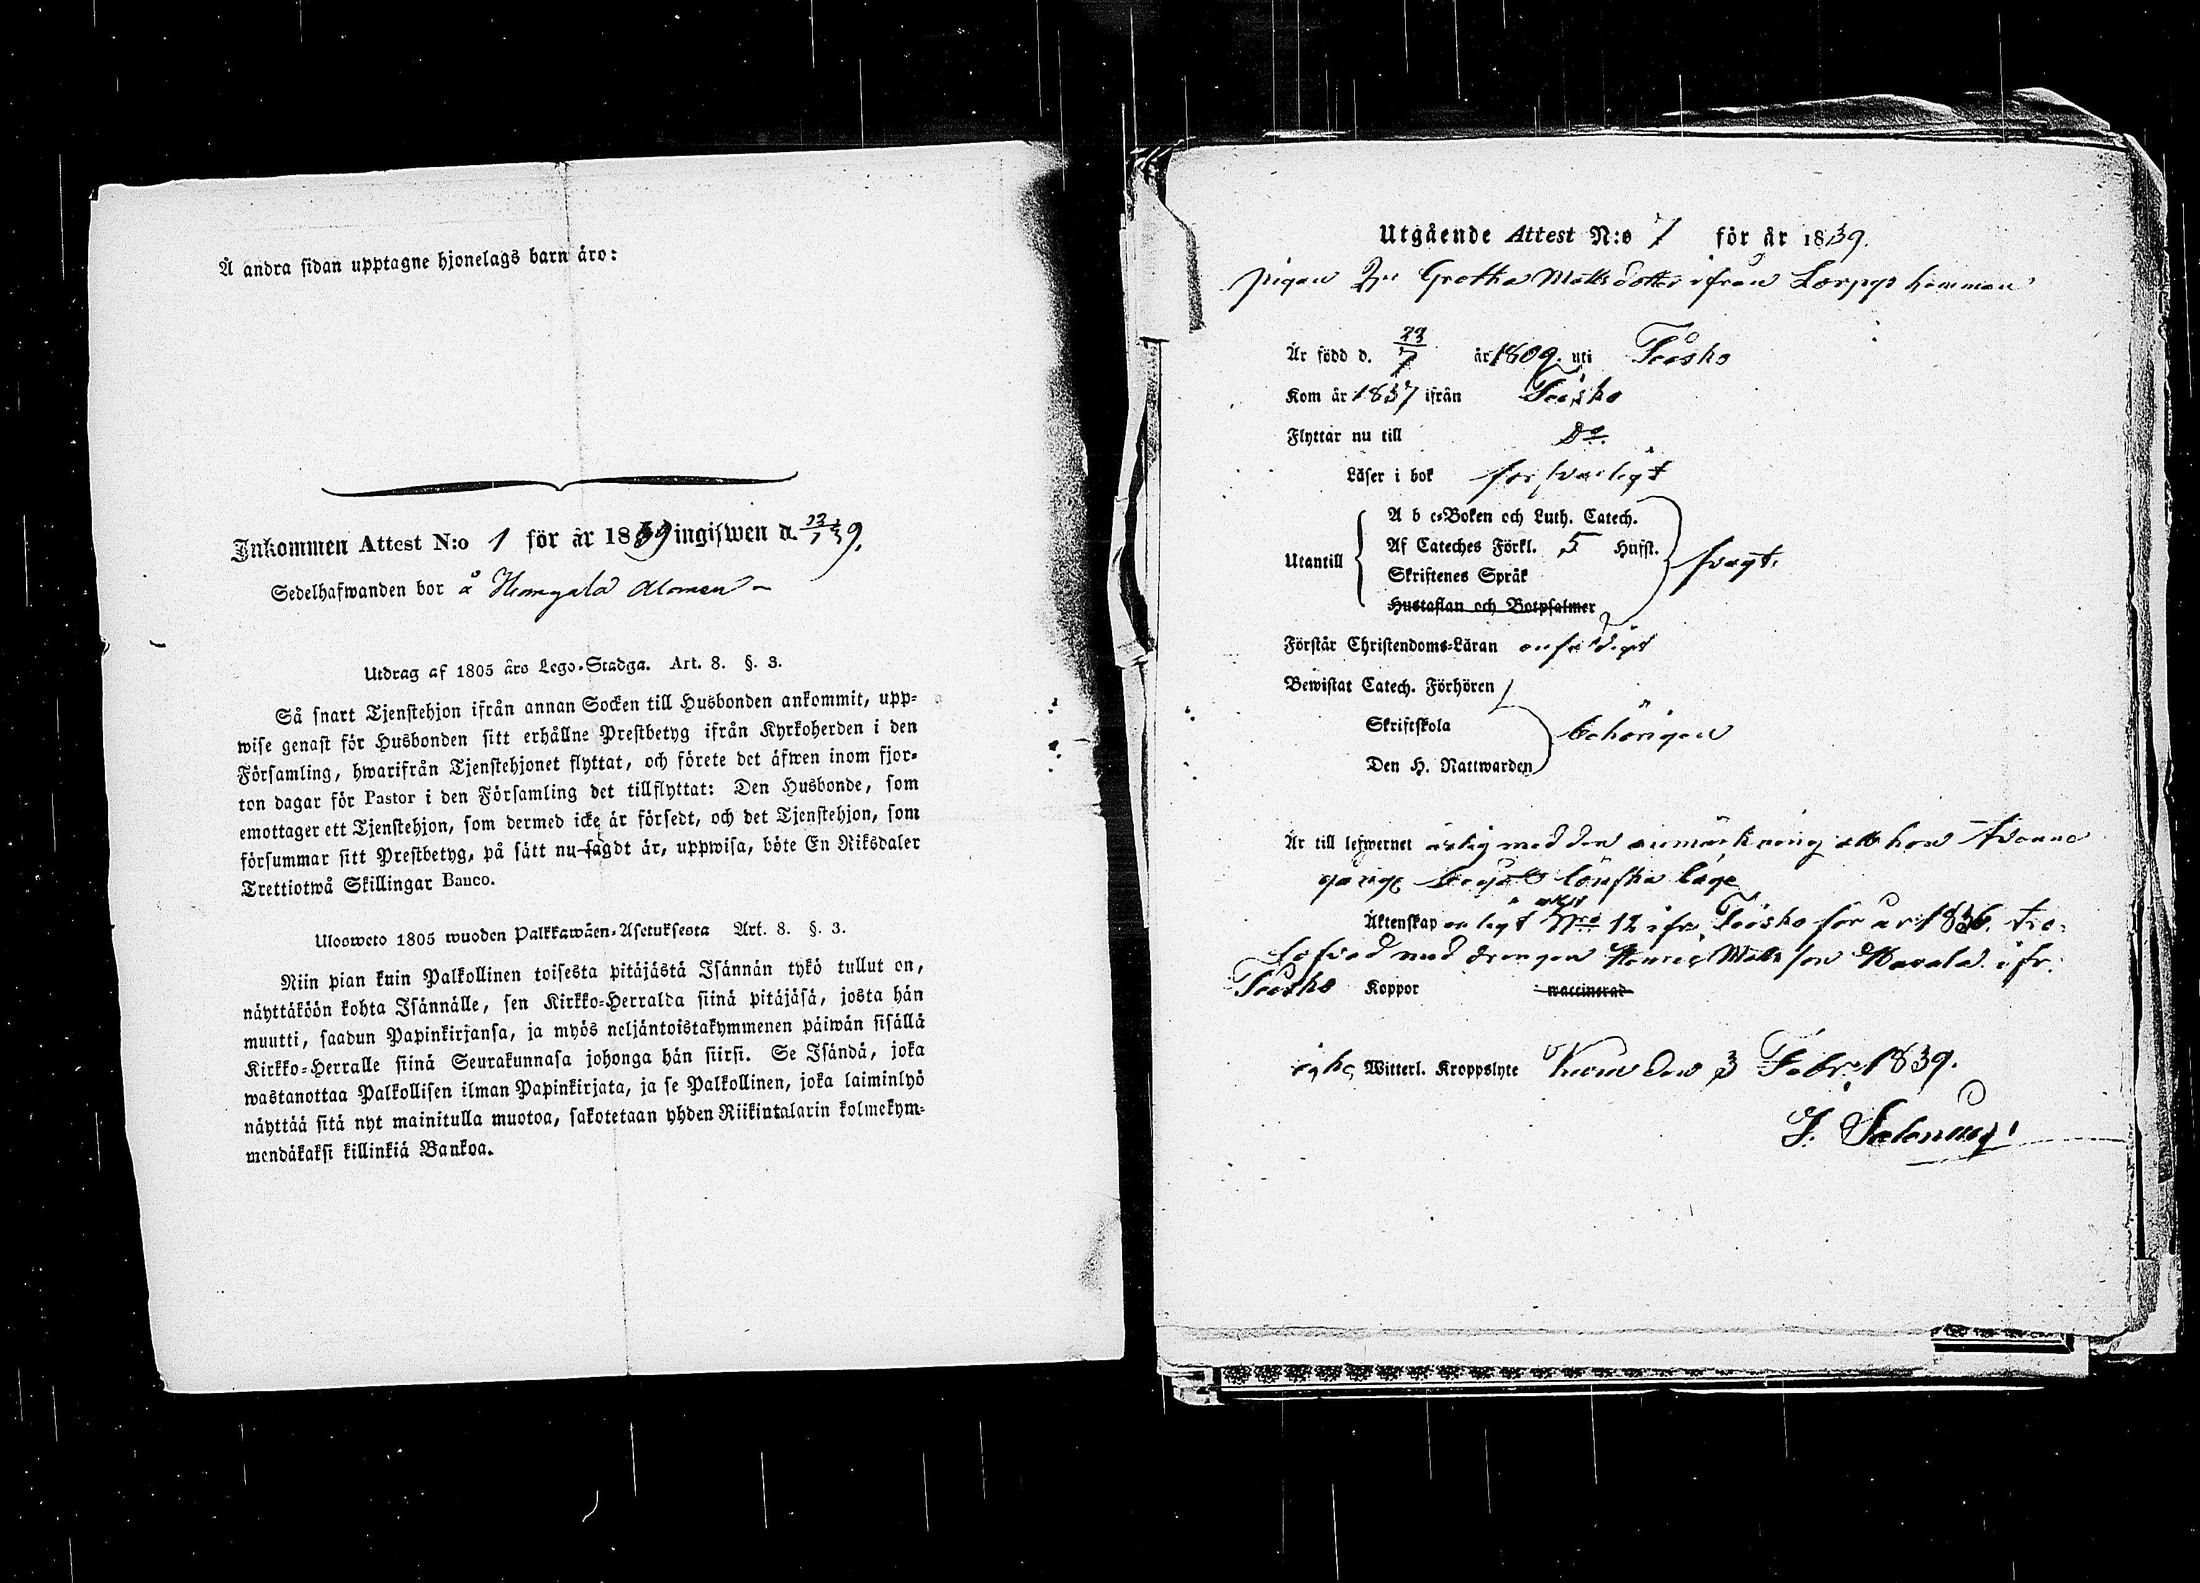 Å andra sidan upptagne hjonelags barn äro:
Inkommen Attest N:o 1 för år 1839 ingifwen d.
Sedelhafwanden bor å
Utdrag af 1805 års Lego-Stadga. Art. 8. §. 3.
Så snart Tjenstehjon ifrån annan Socken till Husbonden ankommit, upp-
wise genast för Husbonden sitt erhållne Prestbetyg ifrån Kyrkoherden i den
Församling, hwarifrån Tjenstehjonet flyttat, och förete det äfwen inom fjor-
ton dagar för Pastor i den Församling det tillflyttat: Den Husbonde, som
emottager ett Tjenstehjon, som dermed icke är försedt, och det Tjenstehjon, som
försummar sitt Prestbetyg, på sätt nu sagdt är, uppwisa, böte En Riksdaler
Trettiotwå Skillingar Banco.
Ulosweto 1805 wuoden Palkkawäen-Asetuksesta Art. 8. §. 3.
Niin pian kuin Palkollinen toisesta pitäjästä Isännän tykö tullut on,
näyttäköön kohta Isännälle, sen Kirkko-Herralda siinä pitäjäsä, josta hän
muutti, saadun Papinkirjansa, ja myös neljäntoistakymmenen päiwän sisällä
Kirkko-Herralle siinä Seurakunnasa johonga hän siirsi. Se Isändä, joka
wastanottaa Palkollisen ilman Papinkirjata, ja se Palkollinen, joka laiminlyö
näyttää sitä nyt mainitulla muotoa, sakotetaan yhden Riikintalarin kolmekym-
mendäkaksi killinkiä Bankoa.
Utgående Attest N:o 7 för år 1839.
pigan Gretha Mattsdotter ifrån hemman
Är född d. 23/7 år 1809. uti Töösko
Kom år 1837 ifrån Töösko
Flyttar nu till Do.
Läser i bok försvarligt
Utantill
A b c-Boken och Luth. Catech.
Af Cateches Förkl. 5 Hufst.
Skriftenes Språk
Hustaflan och Botpsalmer
svagt.
Förstår Christendoms-Läran enfaldigt
Bewistat Catech. Förhören
Skriftskola
Den H. Nattwarden
behörigen
Är till lefwernet ärlig med den anmärkning att hon tvänne
gånge begått lönska läge
Äktenskap enligt attest Nro 12 ifr. Töösko för år 1836. tro-
lofvad med drengen Henric Mattsson ifr.
Töösko Koppor waccinerad
Witterl. Kroppslyte den 3 Febr. 1839.